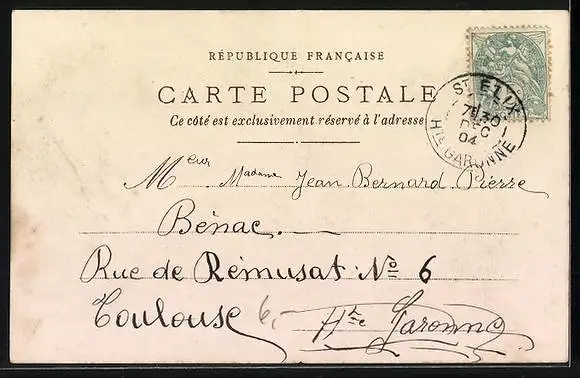 RÉPUBLIQUE FRANÇAISE
CARTE POSTALE
Ce côté est exclusivement réservé à l'adresse
ST ELIX
7E 30
DEC
04
HTE GARONNE
Meur Madame Jean-Bernard-Pierre
Bénac.
Rue de Rémusat No 6
Toulouse 6,- Hte Garonne